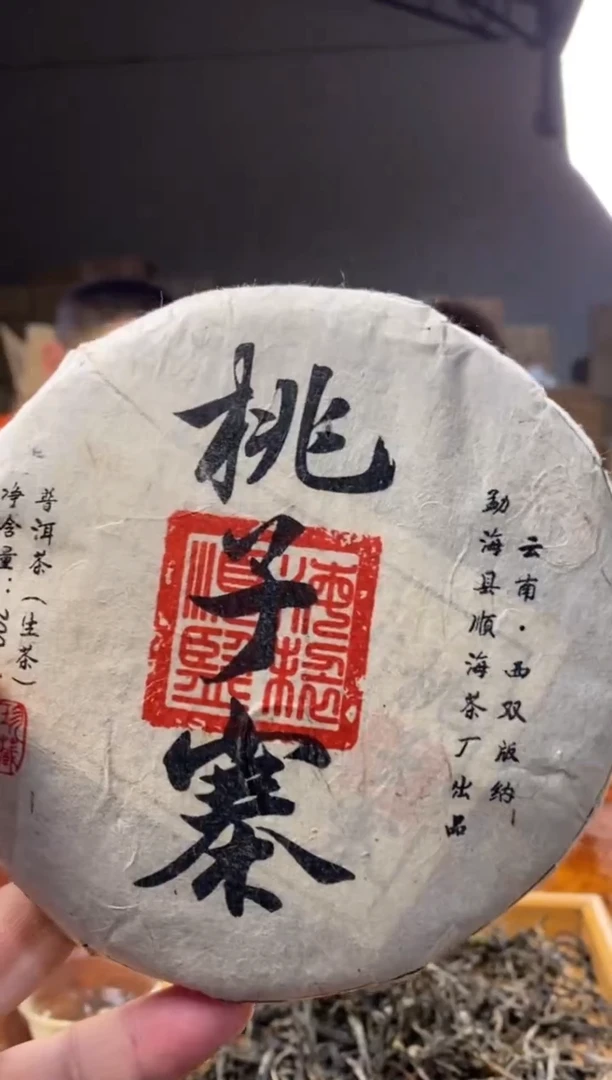 云南·西双版纳
勐海县順海茶厂出品
桃子寨
普洱茶（生茶）
净含量：
珍藏